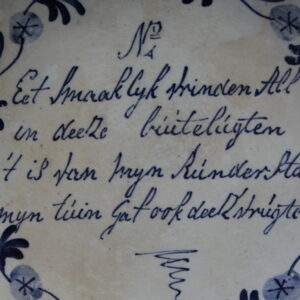 N° 4
Eet Smaaklyk vrinden All
in deeze búútelúgten
't is van myn Rúnder Sta
myn túin Gaf ook deez' vrúgte